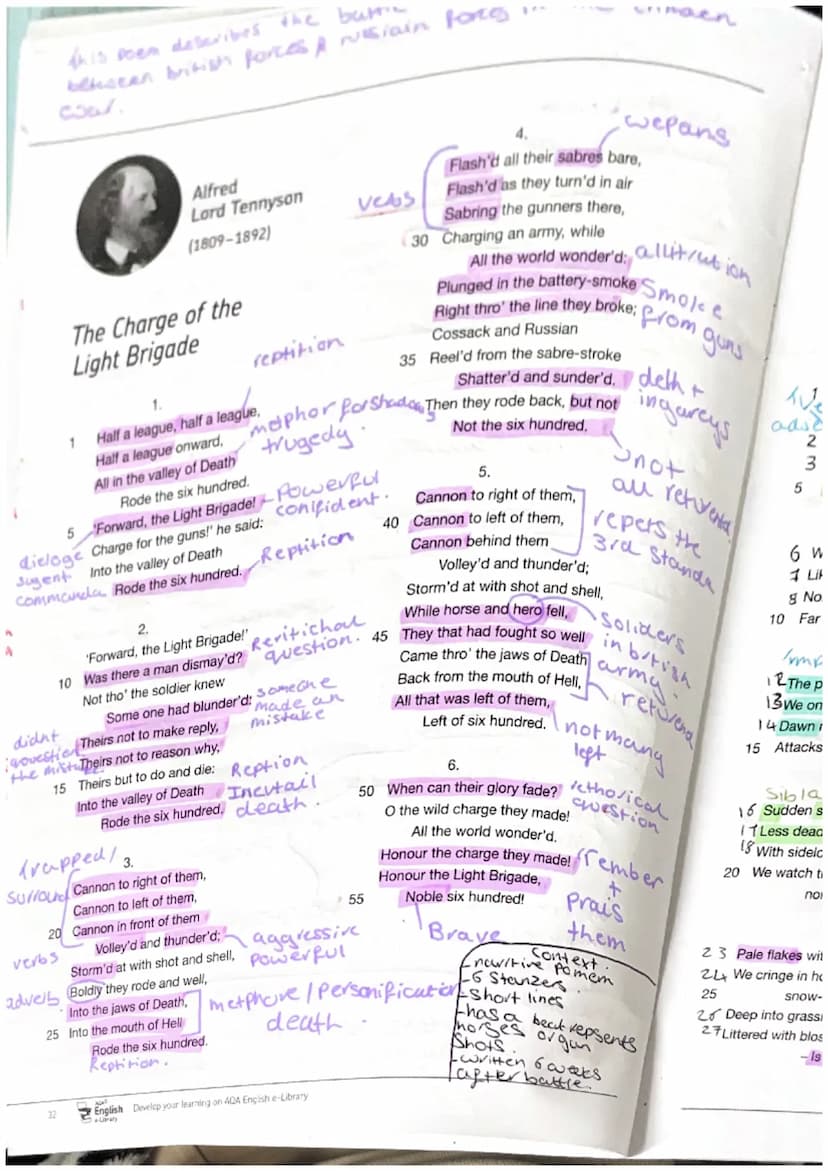 this poem describes the battle
between british forces & russiain forces in the crimaen
war.
Alfred
Lord Tennyson
(1809–1892)
The Charge of the
Light Brigade
reptition
1.
1 Half a league, half a league,
Half a league onward,
All in the valley of Death
Rode the six hundred.
metphor forshadows
trugedy.
5 'Forward, the Light Brigade!
Charge for the guns!' he said:
Into the valley of Death
Rode the six hundred.
Powerful
conifident.
Reptition
dieloge
sugent
commands
2.
'Forward, the Light Brigade!'
10 Was there a man dismay'd?
Not tho' the soldier knew
Some one had blunder'd:
Theirs not to make reply,
Theirs not to reason why,
15 Theirs but to do and die:
Into the valley of Death
Rode the six hundred.
question.
someone
made an
mistake
didnt
question
the mistake
Reption
death.
trapped/
surround
3.
Cannon to right of them,
Cannon to left of them,
20 Cannon in front of them
Volley'd and thunder'd;
Storm'd at with shot and shell,
Boldly they rode and well,
Into the jaws of Death,
25 Into the mouth of Hell
Rode the six hundred.
verbs
adverb
aggressive
powerful
metphore/personification
death.
Reptition.
wepans
4.
Flash'd all their sabres bare,
Flash'd as they turn'd in air
Sabring the gunners there,
30 Charging an army, while
All the world wonder'd:
Plunged in the battery-smoke
Right thro' the line they broke;
Cossack and Russian
35 Reel'd from the sabre-stroke
Shatter'd and sunder'd.
Then they rode back, but not
Not the six hundred.
verbs
Smoke
from guns
deth +
ingareys
not
all returend
5.
Cannon to right of them,
40 Cannon to left of them,
Cannon behind them
Volley'd and thunder'd;
Storm'd at with shot and shell,
While horse and hero fell,
45 They that had fought so well
Came thro' the jaws of Death
Back from the mouth of Hell,
All that was left of them,
Left of six hundred.
repets the
3rd standa
soliders
in british
army.
returend
not many
left
6.
50 When can their glory fade?
O the wild charge they made!
All the world wonder'd.
Honour the charge they made!
Honour the Light Brigade,
55 Noble six hundred!
rethorical
question
rember
+
prais
them
Brave
context.
- 6 Stanzers
- Short lines
- has a beat repsents
horses or gun
Shots.
- written 6 weeks
after battle.
32
AQA
English
e-Library
Develop your learning on AQA English e-Library
1
2
3
5
6 W
7 Lik
8 No
10 Far
12 The p
13 We on
14 Dawn
15 Attacks
Sibla
16 Sudden s
17 Less dead
18 With sidelo
20 We watch t
23 Pale flakes wit
24 We cringe in ho
25 snow-
26 Deep into grass
27 Littered with blos
– Is